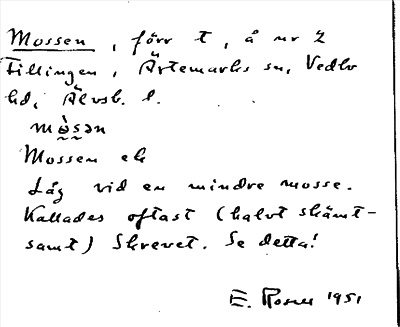 Mossen, förr t, å nr 2
Fillingen, Ärtemarks sn, Vedbo
hd, Älvsb. l.
mòsən
Mossen ek
Låg vid en mindre mosse.
Kallades oftast (halvt skämt-
samt) Skrevet. Se detta!
E. Rosell 1951